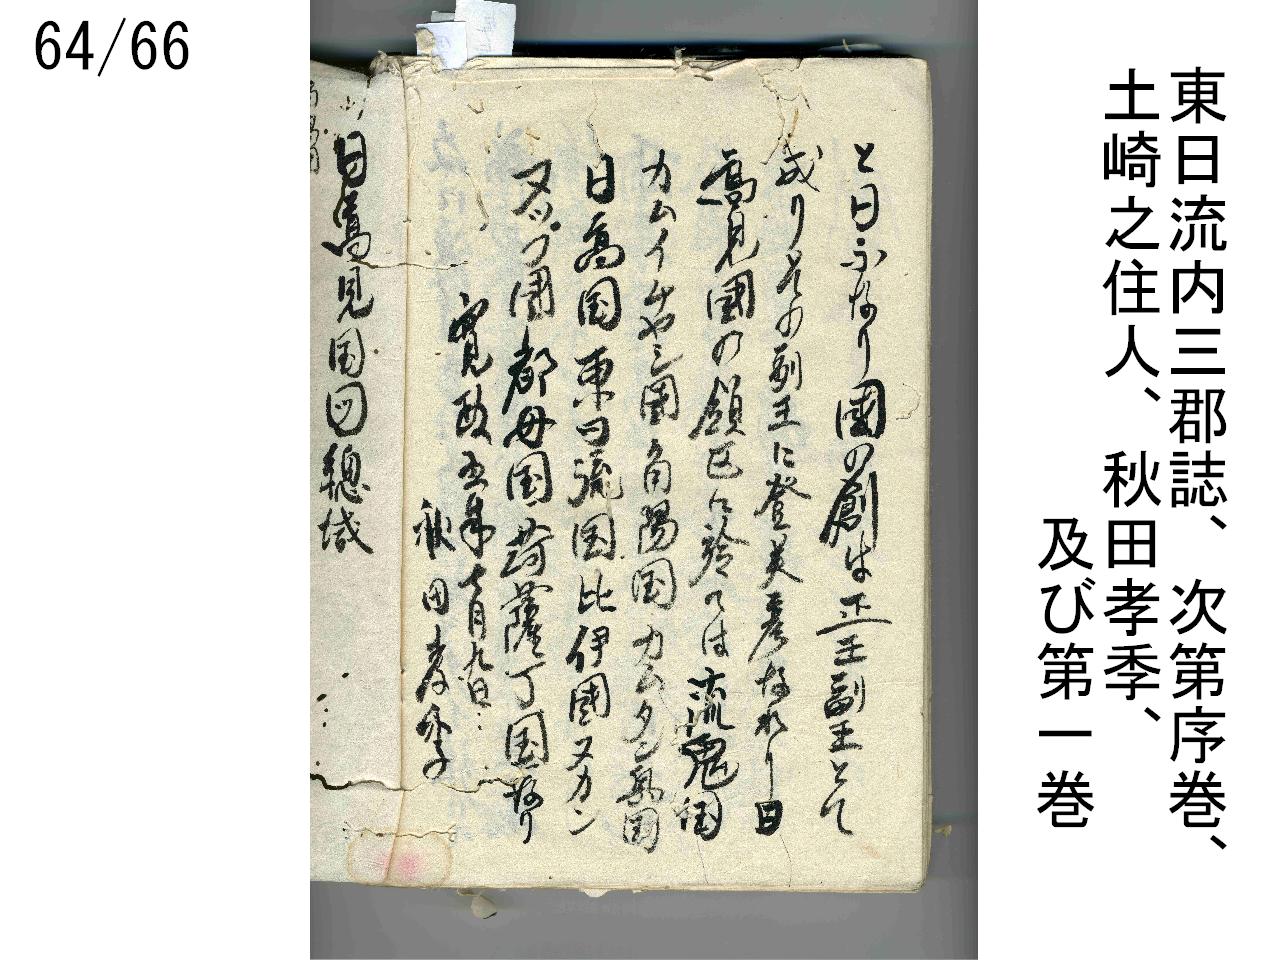 64/66
東日流内三郡誌、次第序巻、
土崎之住人、秋田孝季、
及び第一巻
と曰ふなり國の創は正王副王とて
成りその副王に登美彦なれり日
高見國の領区に於ては流鬼国
カムイ 国角陽国カムタン 国
日高国東日流国比伊國ヌカン
ヌップ國都母国荷薩丁国なり
寛政五年七月九日
秋田孝季
日高見国図総域